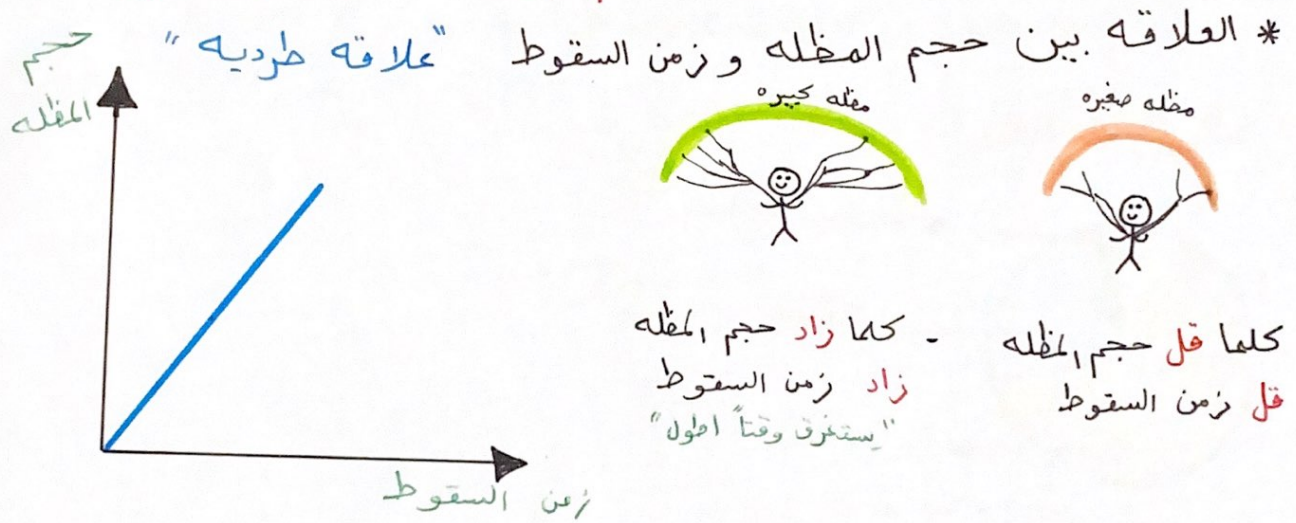 * العلاقه بين حجم المظله و زمن السقوط "علاقه طرديه"
مظله صغيره
كلما قل حجم المظله
قل زمن السقوط
مظله كبيره
- كلما زاد حجم المظله
زاد زمن السقوط
"يستغرق وقتاً اطول"
حجم
المظله
زمن السقوط